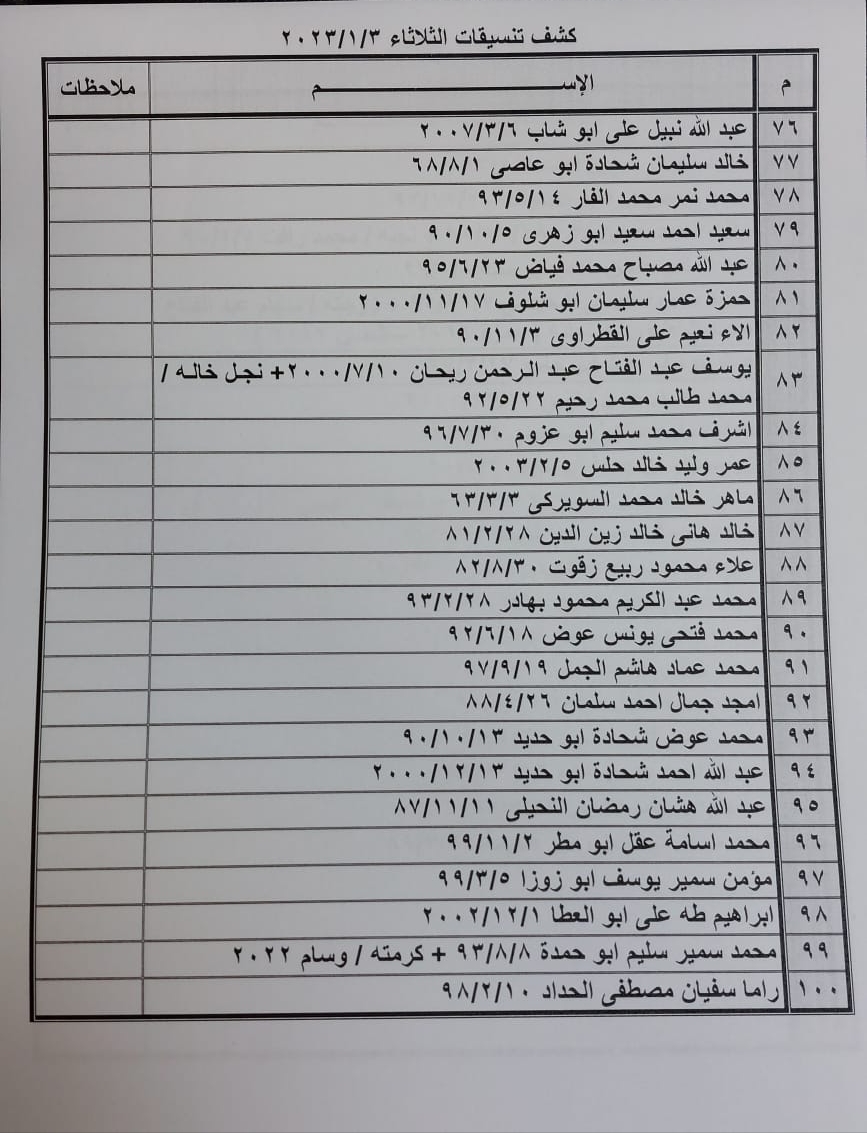 كشف تنسيقات الثلاثاء ٢٠٢٣/١/٣
م الإســــــــم ملاحظات
٧٦ عبد الله نبيل على ابو شاب ٢٠٠٧/٣/٦
٧٧ خالد سليمان شحادة ابو عاصى ٦٨/٨/١
٧٨ محمد نمر محمد الفار ٩٣/٥/١٤
٧٩ سعيد احمد سعيد ابو زهرى ٩٠/١٠/٥
٨٠ عبد الله مصباح محمد فياض ٩٥/٦/٢٣
٨١ حمزة عمار سليمان ابو شلوف ٢٠٠٠/١١/١٧
٨٢ الاء نعيم على القطراوى ٩٠/١١/٣
٨٣ يوسف عبد الفتاح عبد الرحمن ريحان ٢٠٠٠/٧/١٠+ نجل خاله /
محمد طالب محمد رحيم ٩٢/٥/٢٢
٨٤ اشرف محمد سليم ابو عزوم ٩٦/٧/٣٠
٨٥ عمر وليد خالد حلس ٢٠٠٣/٢/٥
٨٦ ماهر خالد محمد السويركى ٦٣/٣/٣
٨٧ خالد هانى خالد زين الدين ٨١/٢/٢٨
٨٨ علاء محمود ربيع زقوت ٨٢/٨/٣٠
٨٩ محمد عبد الكريم محمود بهادر ٩٣/٢/٢٨
٩٠ محمد فتحى يونس عوض ٩٢/٦/١٨
٩١ محمد عماد هاشم الجمل ٩٧/٩/١٩
٩٢ امجد جمال احمد سلمان ٨٨/٤/٢٦
٩٣ محمد عوض شحادة ابو حديد ٩٠/١٠/١٣
٩٤ عبد الله احمد شحادة ابو حديد ٢٠٠٠/١٢/١٣
٩٥ عبد الله هشان رمضان النحيلى ٨٧/١١/١١
٩٦ محمد اسامة عقل ابو مطر ٩٩/١١/٢
٩٧ مؤمن سمير يوسف ابو زوزا ٩٩/٣/٥
٩٨ ابراهيم طه على ابو العطا ٢٠٠٢/١٢/١
٩٩ محمد سمير سليم ابو حمدة ٩٣/٨/٨ + كرمته / وسام ٢٠٢٢
١٠٠ راما سفيان مصطفى الحداد ٩٨/٢/١٠